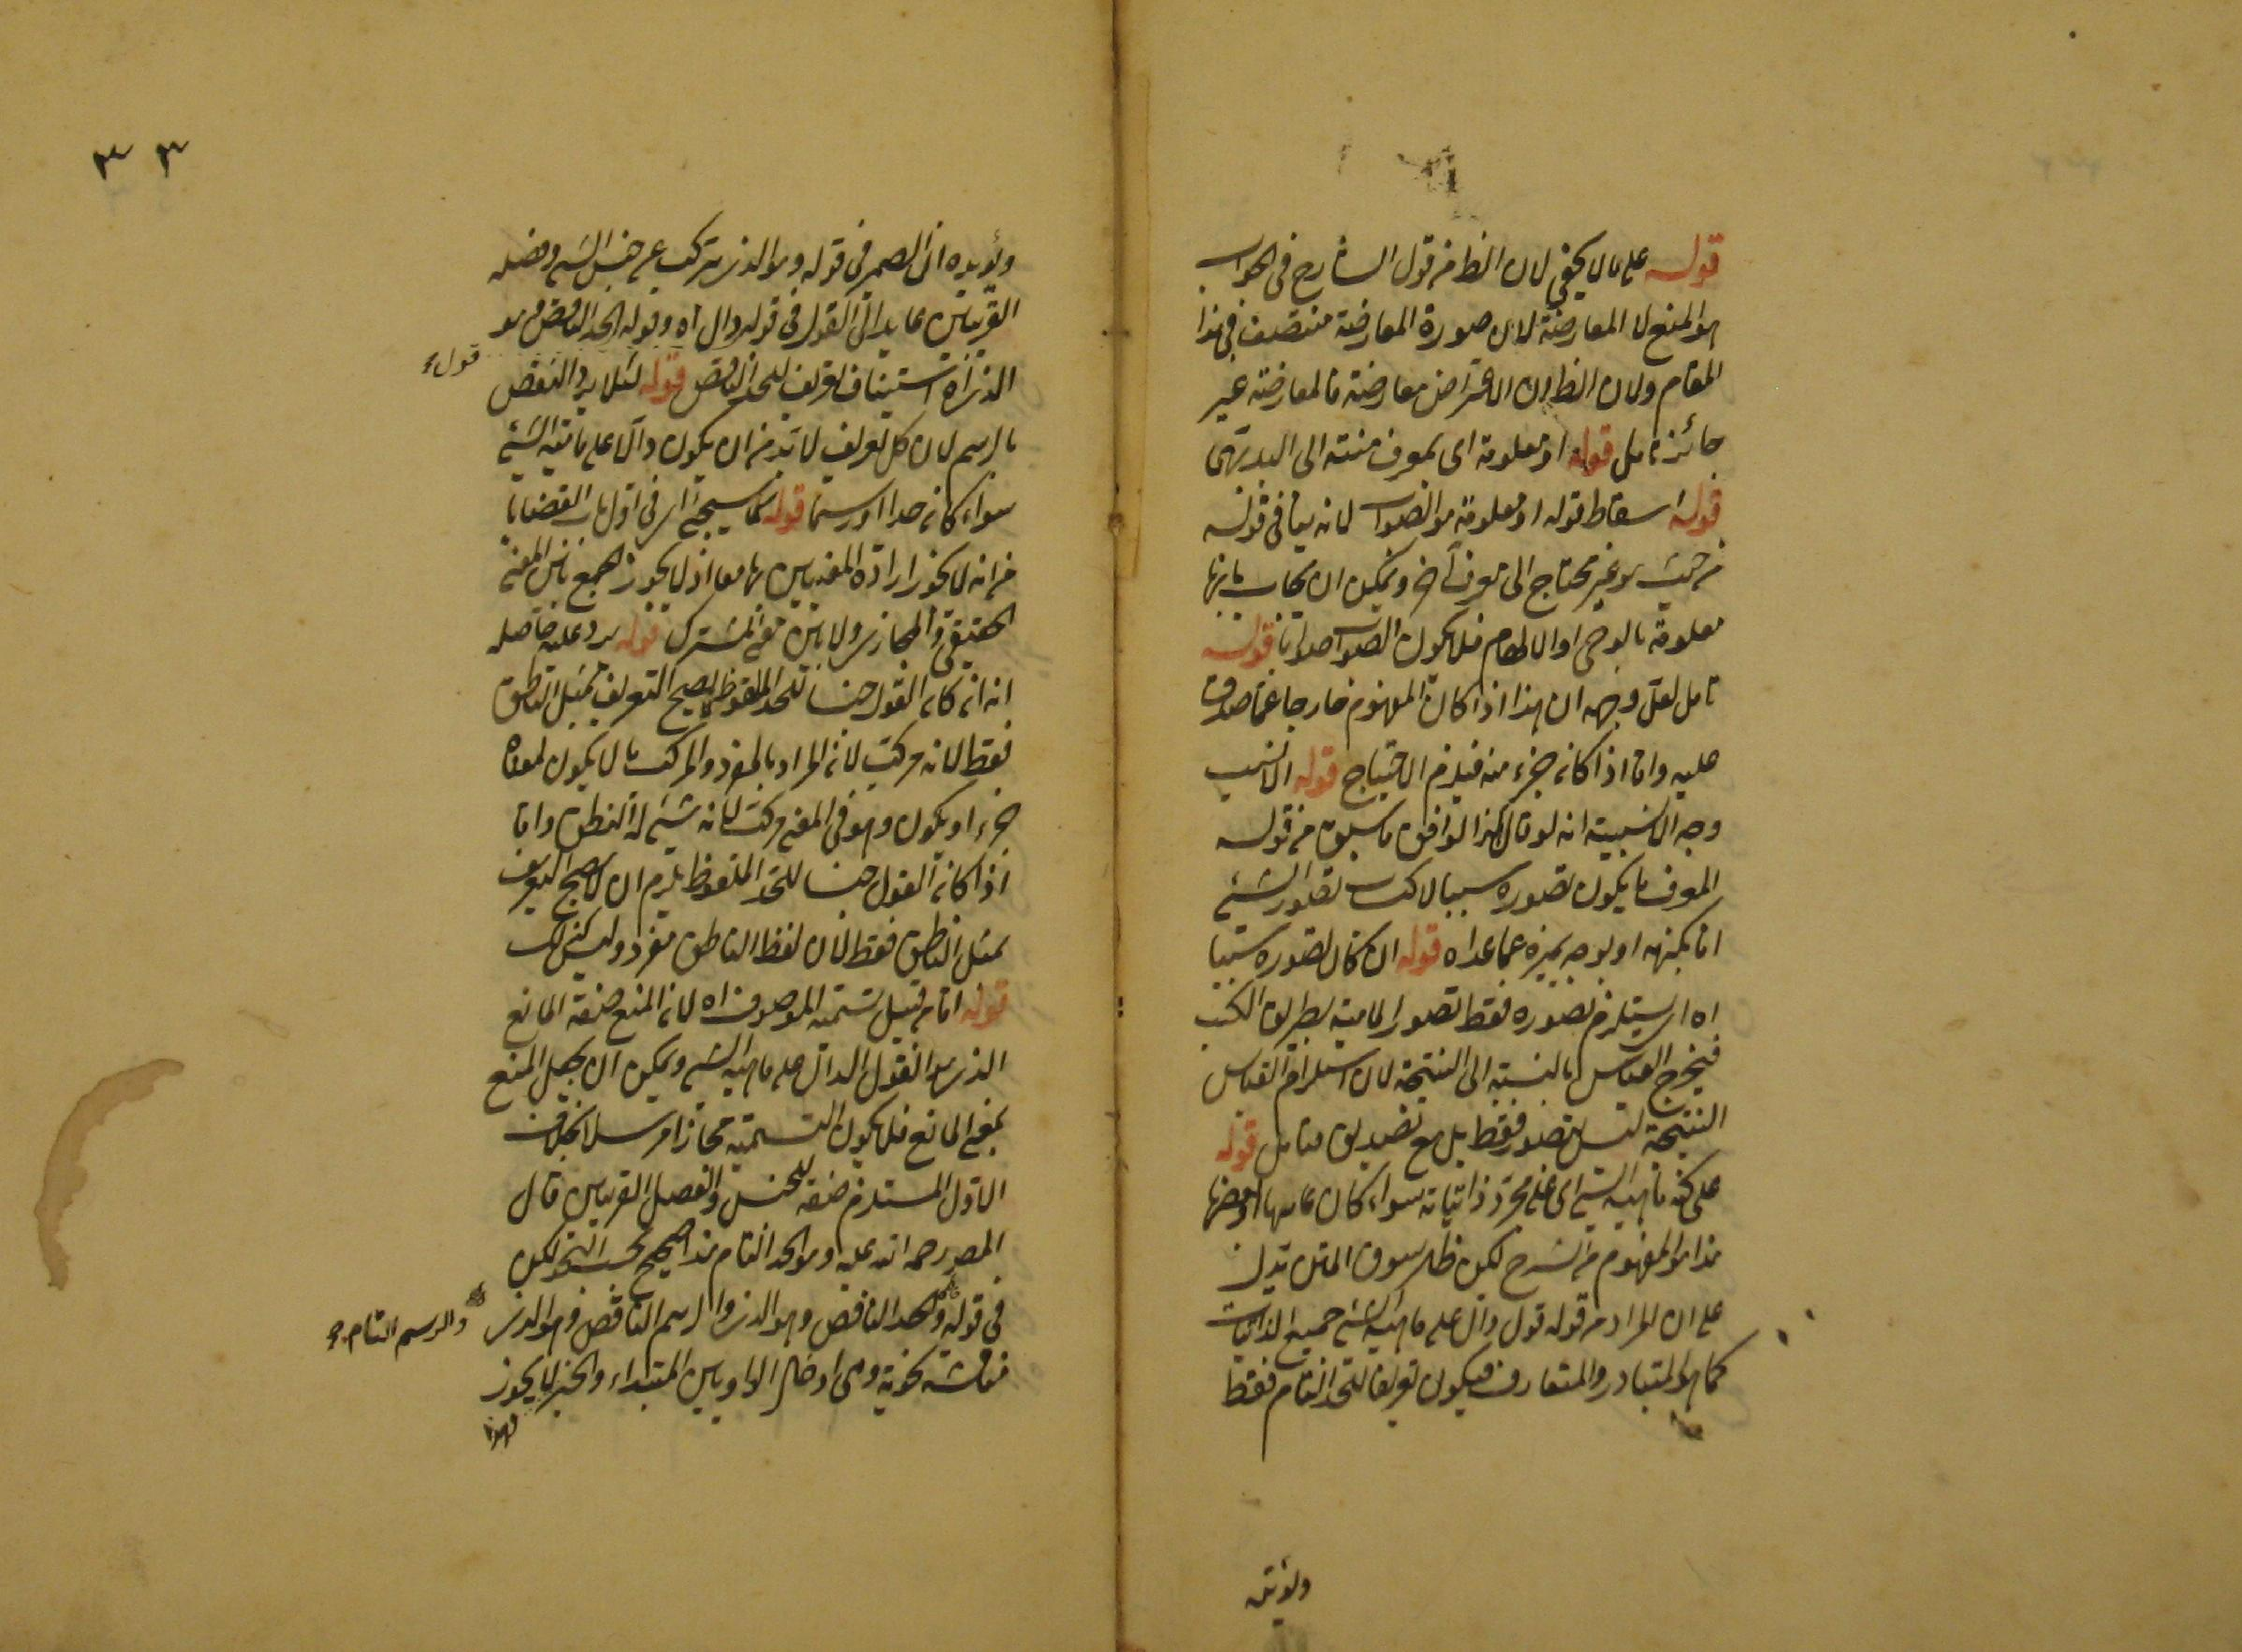 قوله على ما لا يخفى لان الظ من قول الشارح فى الجواب
هو المنع لا المعارضة لان صورة المعارضة فى هذا
المقام ولان الظ ان الاعتراض معارضة فالمعارضة غير
جائز تامل قوله او معلومة اى بمعرف منته الى البديهى
قوله اسقاط قوله او معلومة هو الصواب لانه ينافى قوله
من حيث هو غير محتاج الى معرف آخر ويمكن ان يجاب بانها
معلومة بالوحى او الالهام فلا يكون الصواب صوابا قوله
تامل لعل وجهه ان هذا اذا كان المفهوم خارجا عما صدق
عليه واما اذا كان جزء منه فيلزم الاحتياج قوله الانسب
وجه الانسبية انه لو قال هكذا لوافق ما سبق من قوله
المعرف ما يكون تصوره سببا لاكتساب تصور الشئ
اما بكنهه او بوجه يميزه عما عداه قوله ان كان تصوره سببا
اه اى يستلزم تصوره فقط تصور الماهية بطريق الكسب
فيخرج القياس بالنسبة الى النتيجة لان استلزام القياس
النتيجة ليس بتصور فقط بل مع تصديق فتامل قوله
على كنه ماهية الشئ اى على مجرد ذاتياته سواء كان تمامها او بعضها
هذا هو المفهوم من الشرح لكن ظ سوق المتن تدل
على ان المراد من قوله قول دال على ماهية الشئ جميع الذاتيات
كما هو المتبادر والمتعارف فيكون تعريفا للحد التام فقط
ويؤيده
٣٣
ويؤيده ان الضمير فى قوله وهو الذى يتركب عن جنس الشئ وفصله
القريبين عايد الى القول فى قوله دال آه وقوله الحد الناقص وهو
الذى آه استيناف تعريف للحد الناقص قوله لئلا يرد النقض
قوله
بالرسم لان كل تعريف لابد من ان يكون دالا على ماهية الشئ
سواء كان حدا او رسما قوله كما سيجئ اى فى اول باب القضايا
من انه لا يجوز ارادة المعنيين بها معا اذ لا يجوز الجمع بين المعنى
الحقيقى والمجازى ولا بين معنى المشترك قوله يرد عليه حاصله
انه ان كان القول جنسا للحد الملفوظ يصح التعريف بمثل الناطق
فقط لانه مركب لان المراد بالمفرد والمركب ما لا يكون لمعناه
جزء او يكون وهو فى المعنى مركب لانه شئ له النطق واما
اذا كان القول جنسا للحد الملفوظ يلزم ان لا يصح التعريف
بمثل الناطق فقط لان لفظ الناطق مفرد وليس كذلك
قوله اما من قبيل تسمية الموصوف اه لان المنع صفة المانع
الذى هو القول الدال على ماهية الشئ ويمكن ان يجعل المنع
بمعنى المانع فلا يكون التسمية مجازا مرسلا بخلاف
الاول المستلزم صفة للجنس والفصل القريبين قال
المص رحمه الله عليه وهو الحد التام هذا صحيح بحسب النحو لكن
فى قوله والحد الناقص وهو الذى والرسم الناقص وهو الذى
والرسم التام صح
مناقشة نحوية وهى ادخال الواو بين المبتداء والخبر لا يجوز